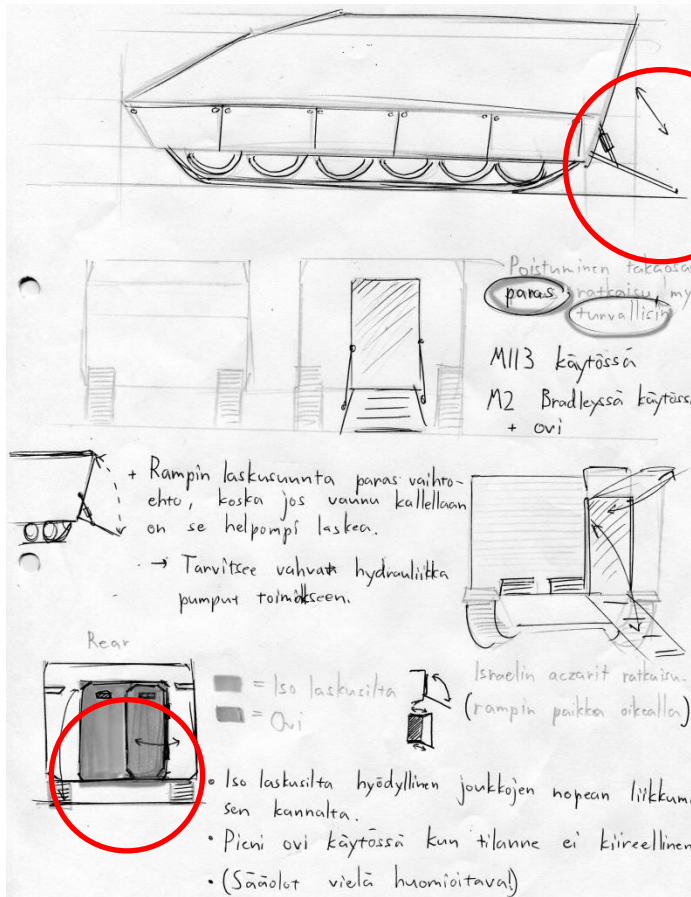 Poistuminen takaosa
paras ratkaisu (my
turvallisin
M113 käytössä
M2 Bradleyssä käytöss
+ ovi
+ Rampin laskusuunta paras vaihto-
ehto, koska jos vaunu kallellaan
on se helpompi laskea.
→ Tarvitsee vahvat hydrauliikka
pumput toimiakseen.
Rear
= Iso laskusilta
= Ovi
Israelin aczarit ratkaisu.
(rampin paikka oikealla)
• Iso laskusilta hyödyllinen joukkojen nopean liikkumi
sen kannalta.
• Pieni ovi käytössä kun tilanne ei kiireellinen
• (Sääolot vielä huomioitava!)